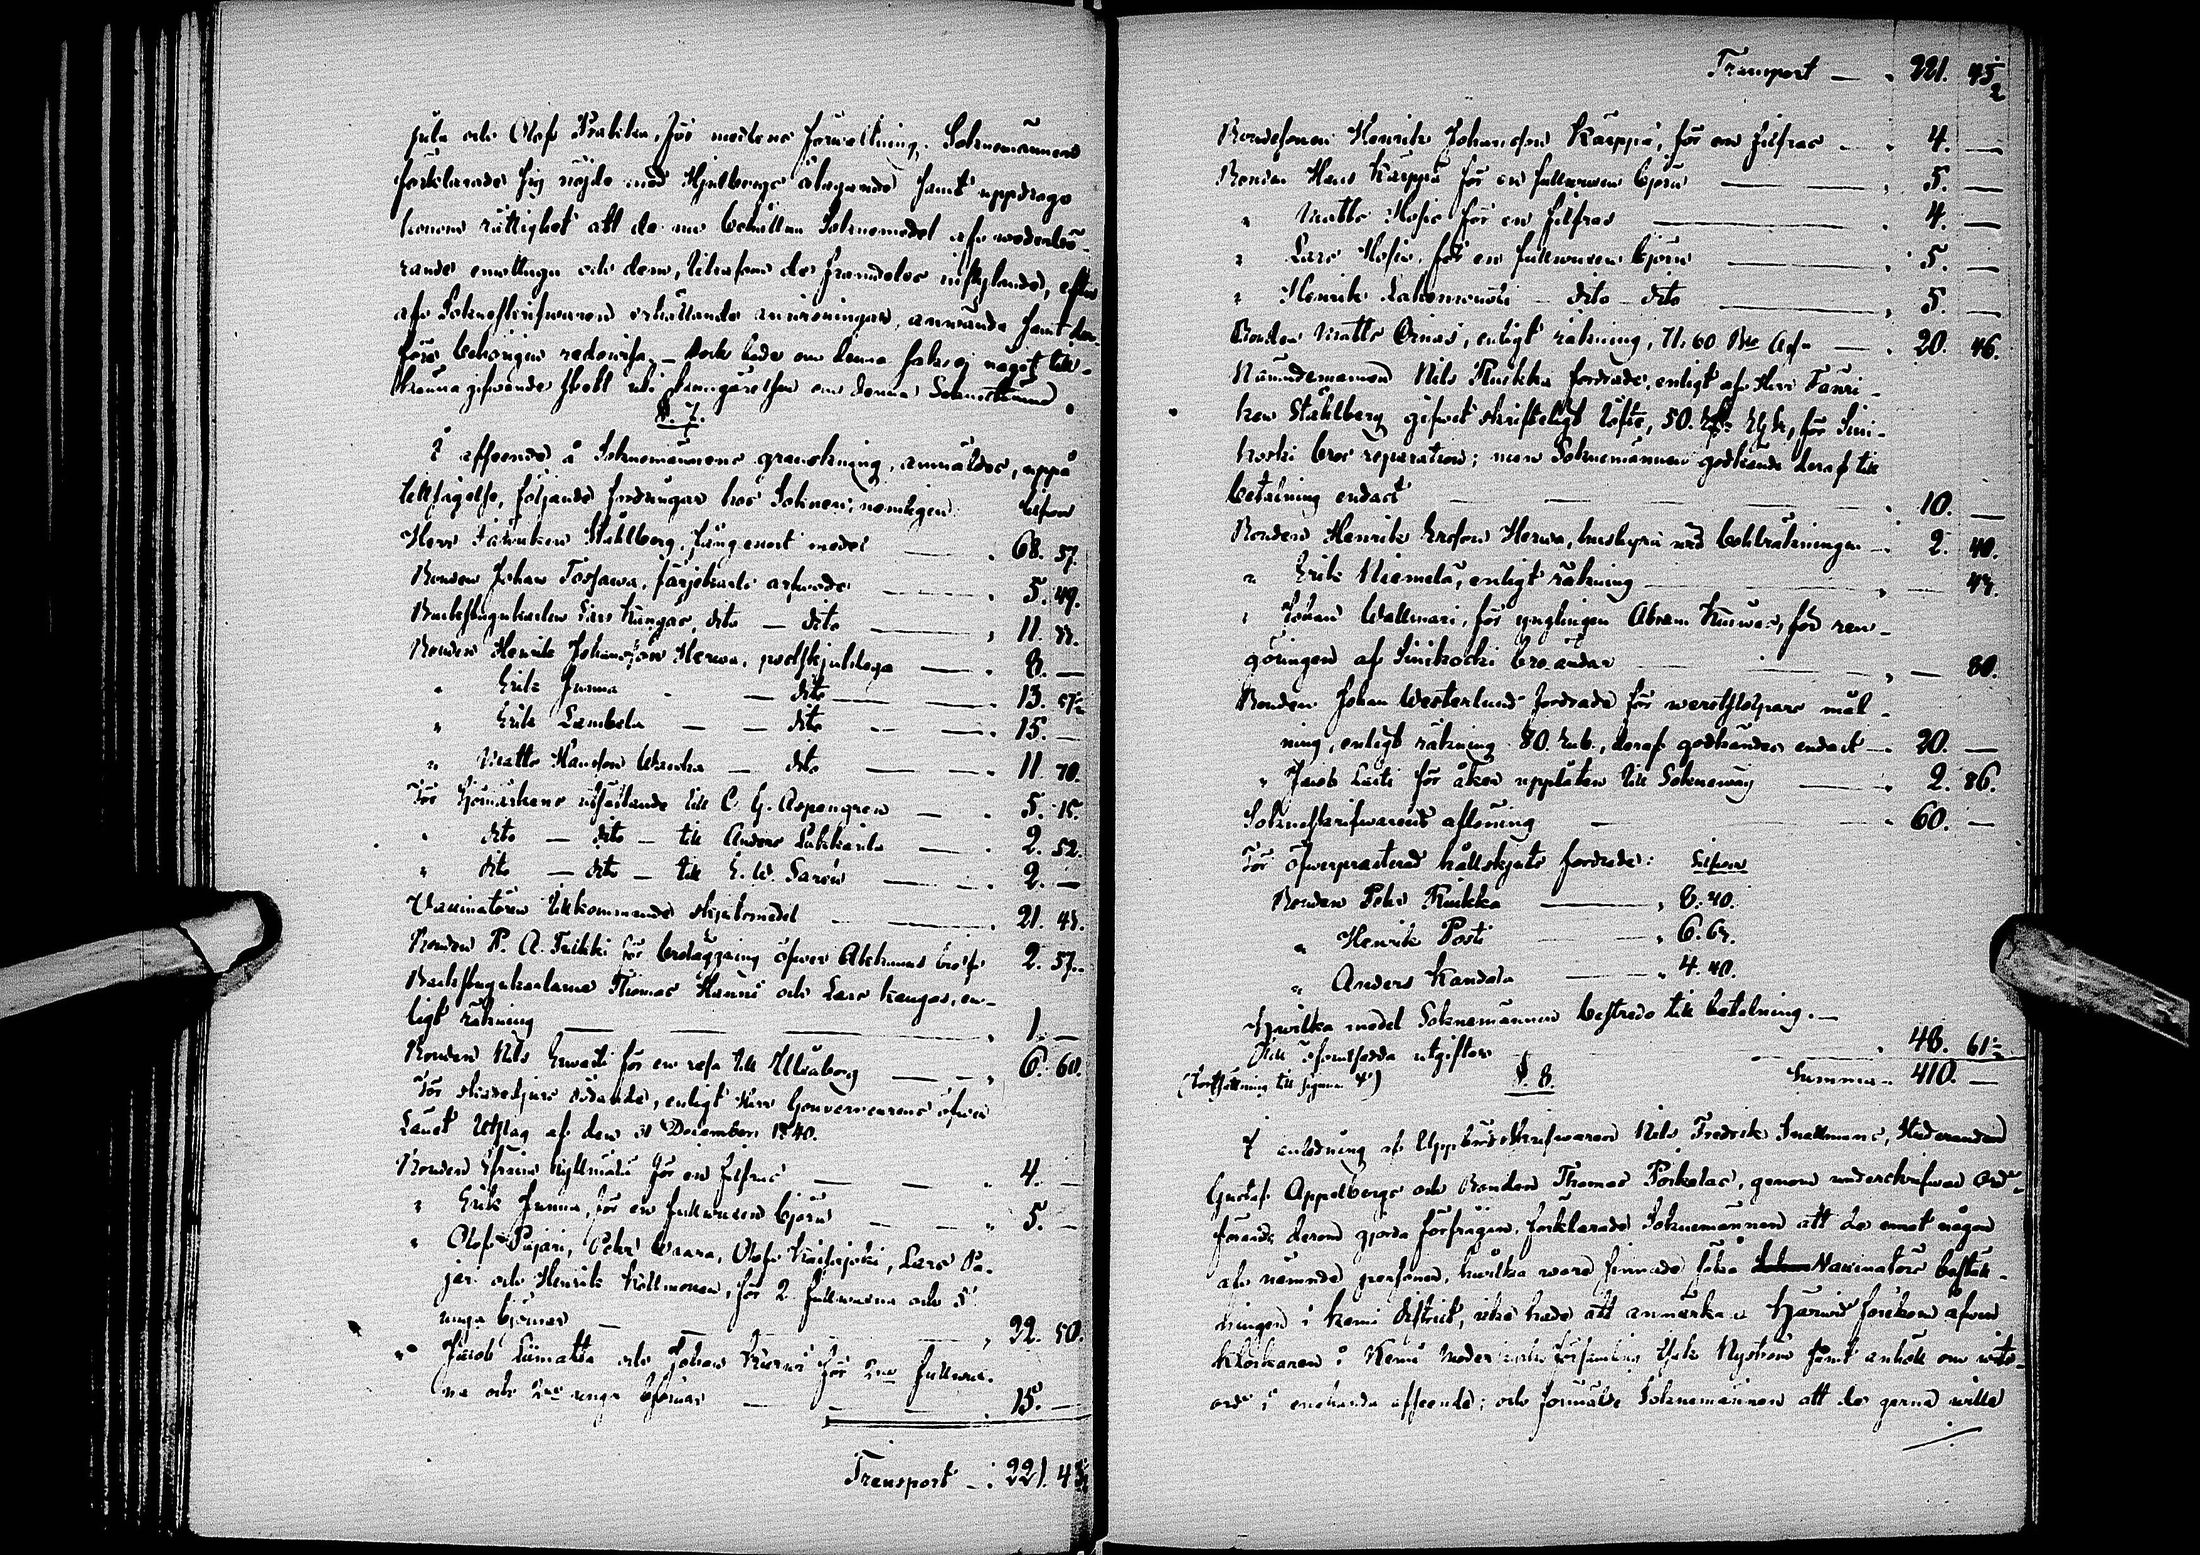 jula och Olof Krakila, för medlens förwaltning. Sockenemännerne
förklarade sig nöjde med Hjelbergs åtagande samt uppdrogo
honom rättighet att de nu behållna Sockenemedel af wederbö-
rande emottaga och dem, tillika de framdeles inflytande, efter
af Sockneskrifwaren erhållande anwisningar, anwända samt der-
före behörigen redowisa. — Dock bade om denna sak ej något till-
känna gifwande skett wid kungörelsen om denna Sockenestämma.
§. 7.
I afseende å Sockenemännens granskning, anmäldes, uppå
tillsägelse, följande fordringar hos Socknen; nemligen: Silfwer
Herr Fänriken Stålberg, fångenort medel — 68. 57.
Bonden Johan Tossawa, färjekarls arfwode — 5. 49.
Backstugukarlen Lars Kangas, dito — dito — 11.
Bonden Henrik Johansson Herwa, postskjutslega — 8. —
" Erik Junna — dito — 13. 57½
" Erik Lambela — dito — 15. —
" Matts Hansson — dito — 11. 70.
För Sjömärkens utsättande till C. G. Aspengren — 5. 15.
" dito — dito — till Anders Lukkarila — 2. 52.
" dito — dito — till E. W. Sarén — 2. —
Vaccinatören tillkommande skjutsmedel — 21. 45.
Bonden P. A. Frikki för broläggning öfwer — 2. 57.
Backstugukarlarne Thomas Hanni och Lars Kangas, en-
ligt räkning — 1. —
Bonden Nils Erwasti för en resa till Uleåborg — 6. 60.
För skadedjurs dödande, enligt Herr Gouverneurens öfwer
Länet Utslag af den 31 December 1840.
Bonden Efraim Kyllmälä för en filfras — 4. —
" Erik Junna, för en fullwuxen björn — 5. —
" Olof Pajari, Pehr Waara, Olof Kaihajoki, Lars Pa-
jari och Henrik Kallmonen, för 2 fullwuxna och 5
unga björnar — 22. 50.
" Jacob Liimatta och Johan för 2ne fullwux-
na och 2ne unga björnar — 15. —
Transport — 221. 45½
Transport — 221. 45½
Bondesonen Henrik Johansson Karppa, för en filfras — 4. —
Bonden Hans Karppa för en fullwuxen björn — 5. —
" Matts Hosio för en filfras — 4. —
" Lars Hosio, för en fullwuxen björn — 5. —
" Henrik — dito — dito — 5. —
Bonden Matts Örnäs, enligt räkning, 71. 60 — 20. 46.
Nämndemannen Nils Ruikka fordrade, enligt af Herr Fänri-
ken Stålberg gifwit skrifteligt löfte, 50. för Sini-
koski bros reparation; men Sockenemännen godkände deraf till
betalning endast — 10. —
Bonden Henrik Ersson Herwa, hushyra wid boktäkningen — 2. 40.
" Erik Niemelä, enligt räkning —
" Johan Wallmari, för ynglingen Abram Kuiwas, för ren-
göringen af Sinikoski bro ändar — 80.
Bonden Johan Westerlund fordrade för werststolpars mål-
ning, enligt räkning 80. Rub., deraf godkändes endast — 20. —
" Jacob Lasti för åker upplåten till Sockneväg — 2. 86.
Sockneskrifwarens aflöning — 60. —
För öfwerpresterad hållskjuts fordrade: Silfwer
Bonden Pehr Ruikka — 8. 40.
" Henrik Posti — 6.
" Anders Kandola — 4. 40.
Hwilka medel Sockenemännen bestredo till betalning. —
Till oförutsedda utgifter — 48. 61½
(Fortsättning till signum) §. 8. Summa 410. —
I anledning af Uppbördsskrifwaren Nils Fredrik Snellmans, Studeranden
Gustaf Appelbergs och Bonden Thomas Porkolas, genom underskrifwen Ord-
förande derom gjorda förfrågan, förklarade Sockenemännen att de emot någon
af nämnde personer, hwilka wore sinnade söka Vaccinators beställ-
ningen i Kemi district, icke hade att anmärka. Härwid förekom äfwen
klockaren i Kemi Moderkyrko församling Isak Nyström samt anhöll om witts-
ord i enahanda afseende; och förmälte Sockenemännen att de gerna wille